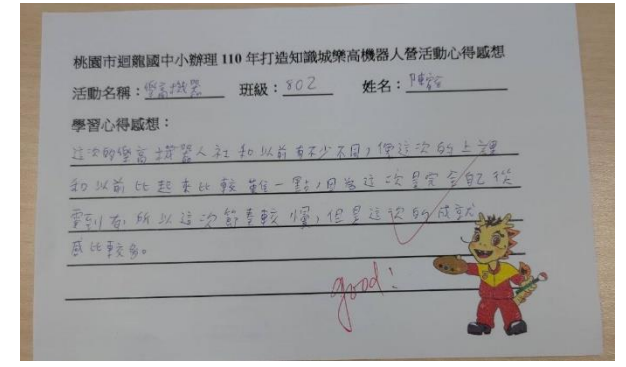 桃園市迴龍國中小辦理 110 年打造知識城樂高機器人營活動心得感想
活動名稱：樂高機器 班級：802 姓名：陳
學習心得感想：
這次的樂高機器人社和以前有不少不同，像這次的上課
和以前比起來比較難一點，因為這次是完全自己從
零到有，所以這次節奏較慢，但是這次的成就
感比較多。
good!